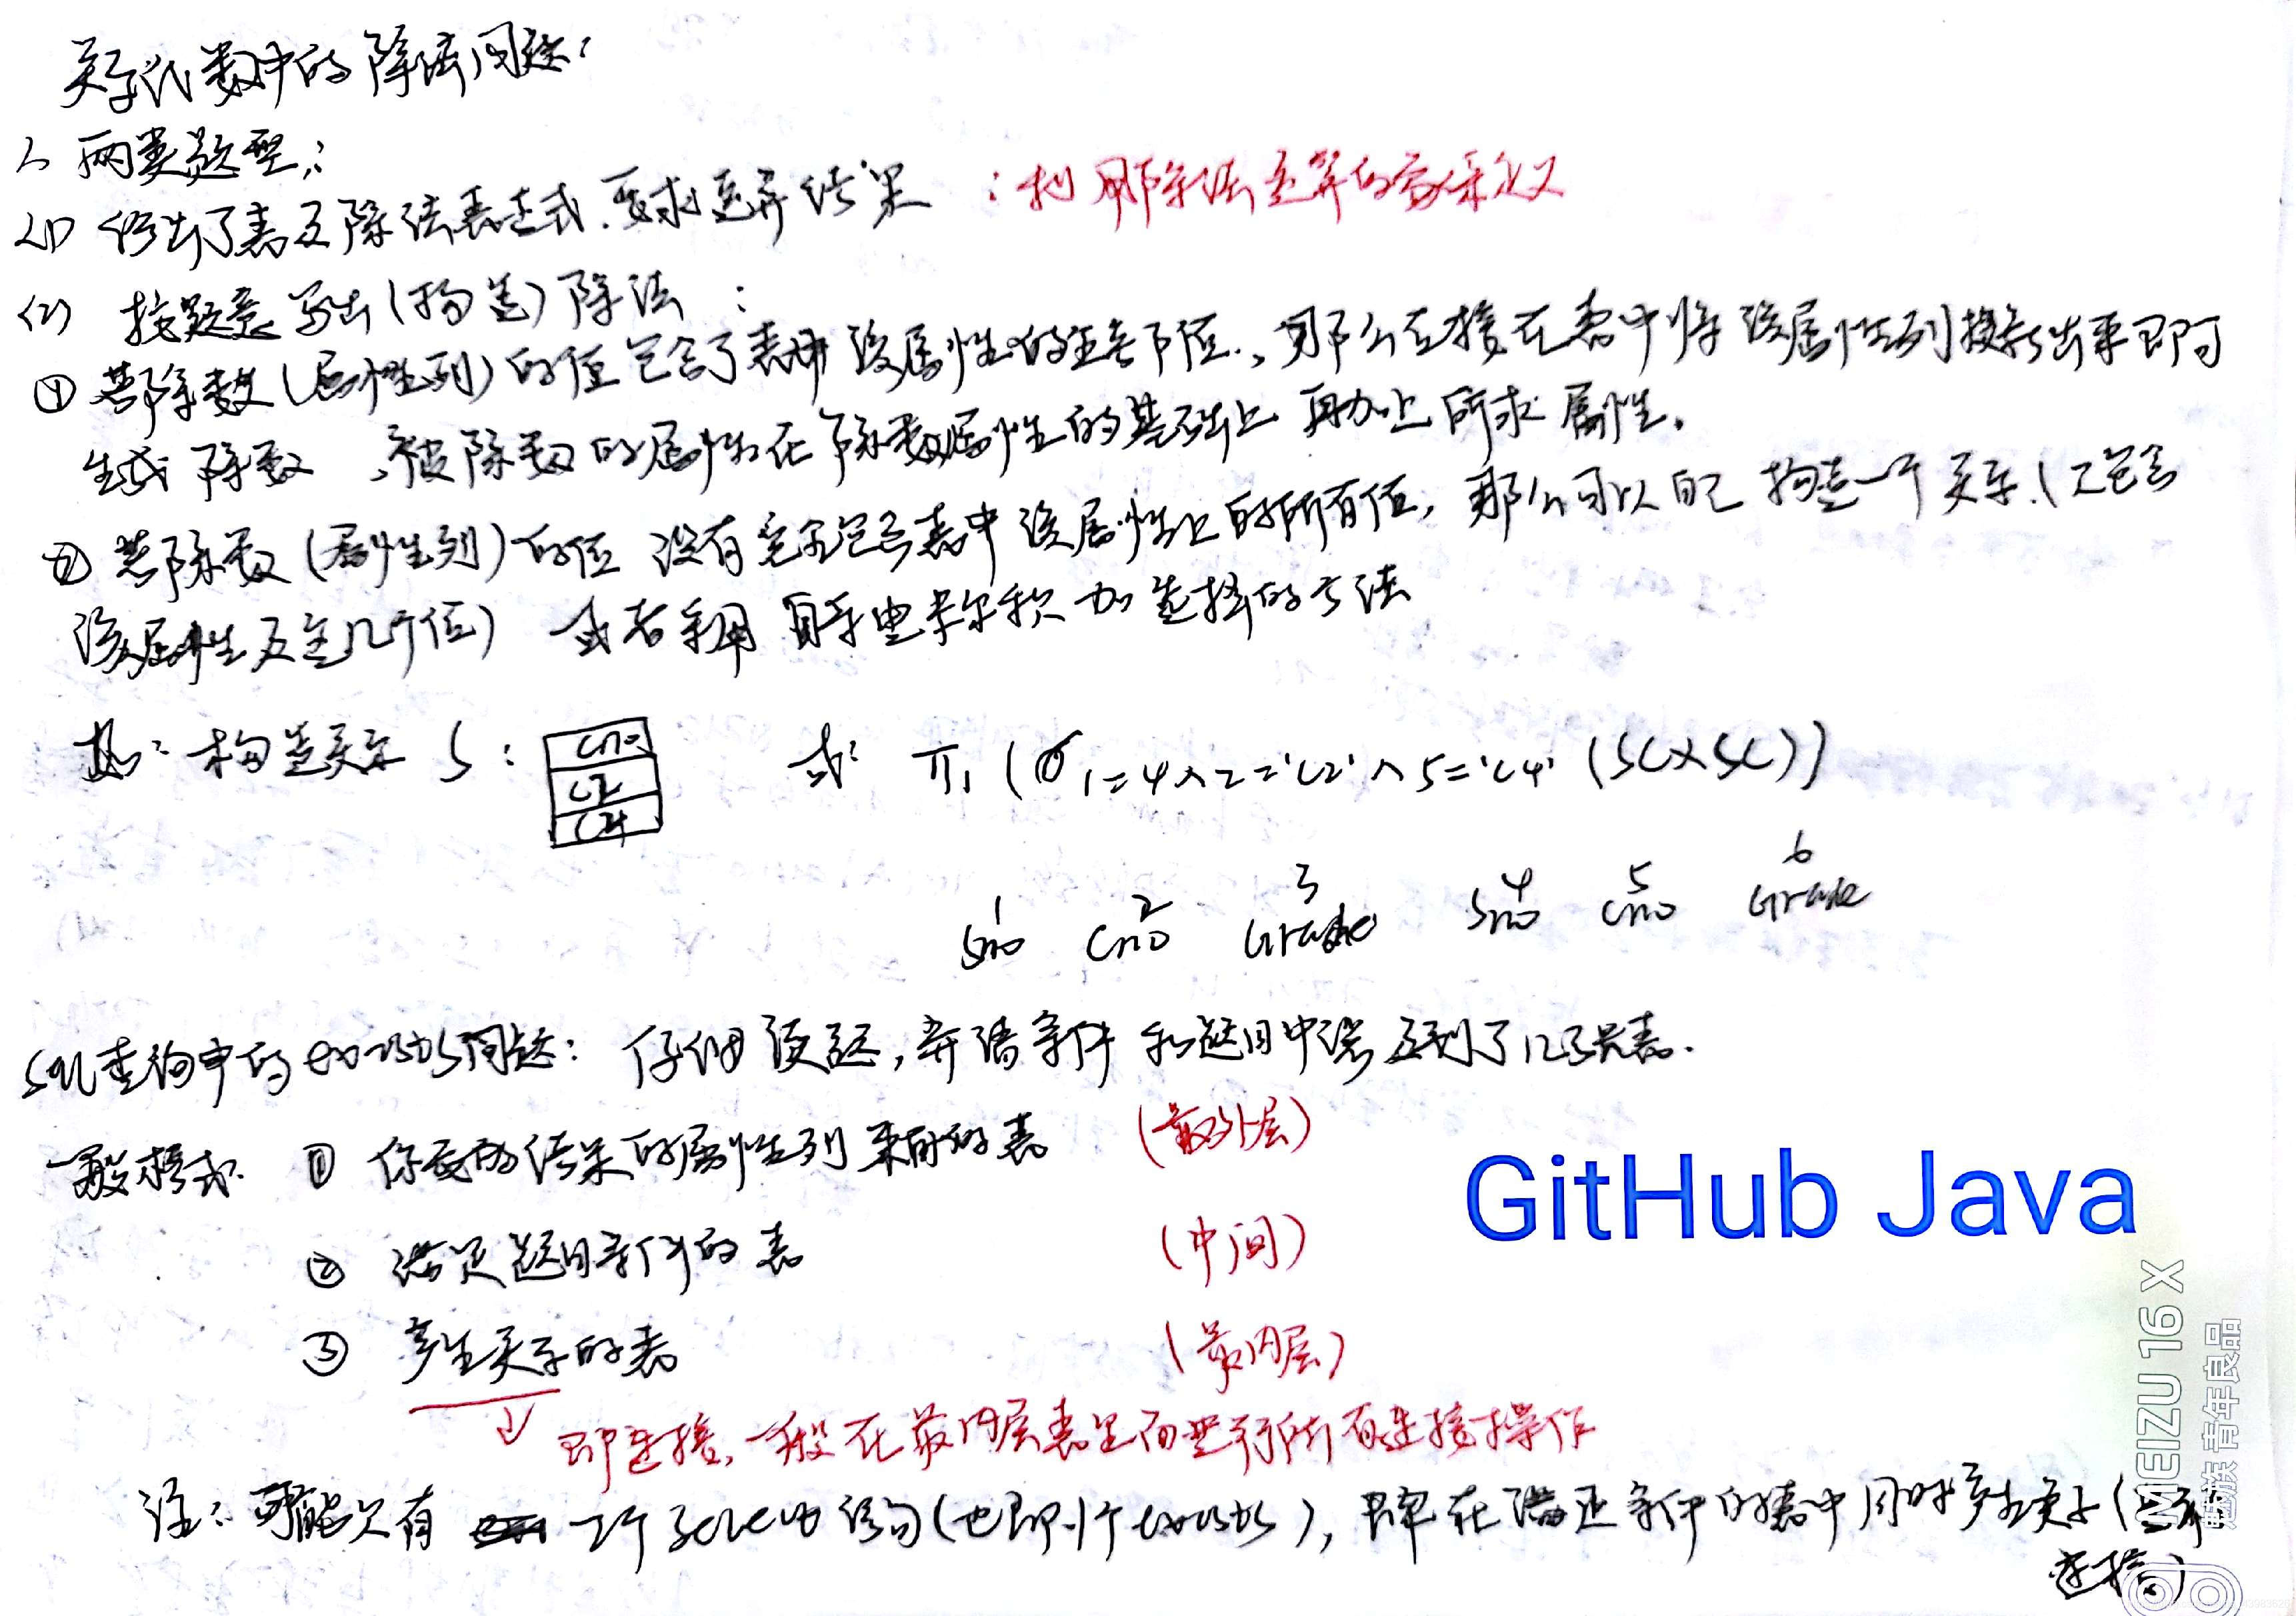 关系代数中的除法问题:
1、两类题型:
(1) 给出了表及除法表达式.要求运算结果 :利用除法运算的含义
(2) 按题意写出(构造)除法:
① 若除数(属性列)的值包含了表中该属性的全部值,那么直接在表中将该属性列投影出来即可
生成除数,被除数的属性在除数属性的基础上再加上所求属性.
② 若除数(属性列)的值没有完全包含表中该属性上的所有值,那么可以自己构造一个关系.(只包含
该属性及这几个值) 或者采用自身笛卡尔积加选择的方法
构造关系 S: 或: π1 (σ1=4∧2='C2'∧5='C4' (SC×SC))
Cno
C2
C4
1 2 3 4 5 6
Sno Cno Grade Sno Cno Grade
SQL查询中的exists问题: 仔细读题,弄清条件和题目中涉及到了几张表.
一般模式: ① 你要的结果的属性列来自的表 (最外层)
② 满足题目条件的表 (中间)
③ 产生关系的表 (最内层)
↓ 即连接,一般在最内层表里面进行所有连接操作
注:可能只有 二个select语句(也即1个exists),即在满足条件的表中同时产生关系(
连接)
GitHub Java
MEIZU 16 X
魅族 青年良品